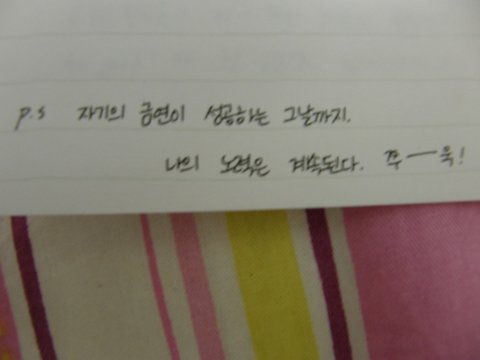 p.s 자기의 금연이 성공하는 그날까지.
나의 노력은 계속된다. 쭈──욱!